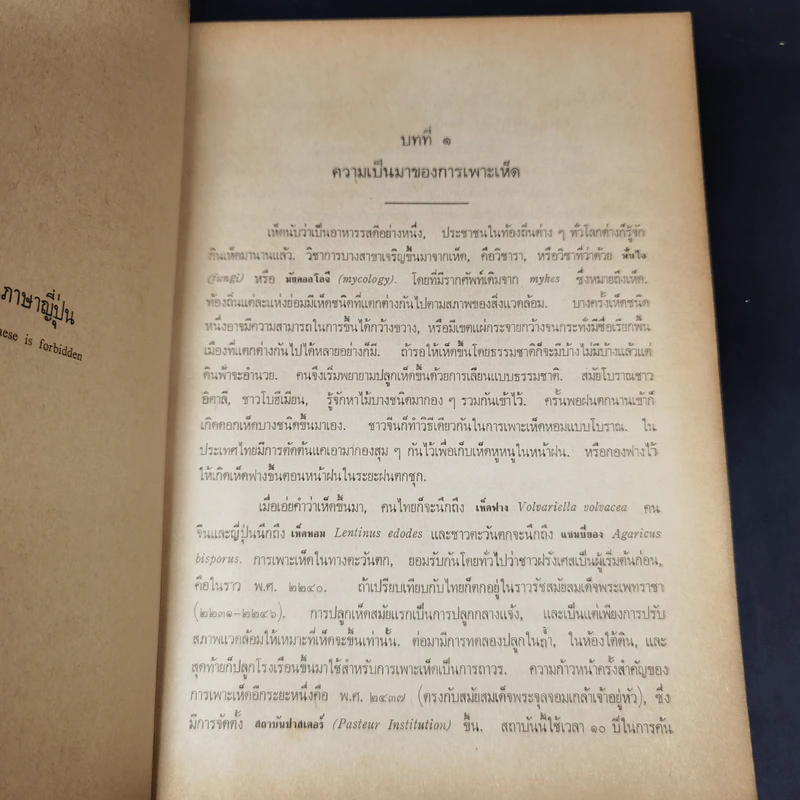 ภาษาญี่ปุ่น
is forbidden
บทที่ ๑
ความเป็นมาของการเพาะเห็ด
เห็ดนับว่าเป็นอาหารรสดีอย่างหนึ่ง, ประชาชนในท้องถิ่นต่าง ๆ ทั่วโลกต่างก็รู้จัก
กินเห็ดมานานแล้ว. วิชาการบางสาขาเจริญขึ้นมาจากเห็ด, คือวิชารา, หรือวิชาที่ว่าด้วย ฟันไจ
(fungi) หรือ มัยคอลโลจี (mycology). โดยที่มีรากศัพท์เดิมจาก mykes ซึ่งหมายถึงเห็ด.
ท้องถิ่นแต่ละแห่งย่อมมีเห็ดชนิดที่แตกต่างกันไปตามสภาพของสิ่งแวดล้อม. บางครั้งเห็ดชนิด
หนึ่งอาจมีความสามารถในการขึ้นได้กว้างขวาง, หรือมีเขตแผ่กระจายกว้างจนกระทั่งมีชื่อเรียกพื้น
เมืองที่แตกต่างกันไปได้หลายอย่างก็มี. ถ้ารอให้เห็ดขึ้นโดยธรรมชาติก็จะมีบ้างไม่มีบ้างแล้วแต่
ดินฟ้าจะอำนวย. คนจึงเริ่มพยายามปลูกเห็ดขึ้นด้วยการเลียนแบบธรรมชาติ. สมัยโบราณชาว
อิตาลี, ชาวโบฮีเมียน, รู้จักหาไม้บางชนิดมากอง ๆ รวมกันเข้าไว้. ครั้นพอฝนตกนานเข้าก็
เกิดดอกเห็ดบางชนิดขึ้นมาเอง. ชาวจีนก็ทำวิธีเดียวกันในการเพาะเห็ดหอมแบบโบราณ. ใน
ประเทศไทยมีการตัดต้นแคเอามากองสุม ๆ กันไว้เพื่อเก็บเห็ดหูหนูในหน้าฝน. หรือกองฟางไว้
ให้เกิดเห็ดฟางขึ้นตอนหน้าฝนในระยะฝนตกชุก.
เมื่อเอ่ยคำว่าเห็ดขึ้นมา, คนไทยก็จะนึกถึง เห็ดฟาง Volvariella volvacea คน
จีนและญี่ปุ่นนึกถึง เห็ดหอม Lentinus edodes และชาวตะวันตกจะนึกถึง แชมปิญอง Agaricus
bisporus. การเพาะเห็ดในทางตะวันตก, ยอมรับกันโดยทั่วไปว่าชาวฝรั่งเศสเป็นผู้เริ่มต้นก่อน,
คือในราว พ.ศ. ๒๒๔๐. ถ้าเปรียบเทียบกับไทยก็ตกอยู่ในราวรัชสมัยสมเด็จพระเพทราชา
(๒๒๓๑-๒๒๔๖). การปลูกเห็ดสมัยแรกเป็นการปลูกกลางแจ้ง, และเป็นแต่เพียงการปรับ
สภาพแวดล้อมให้เหมาะที่เห็ดจะขึ้นเท่านั้น. ต่อมามีการทดลองปลูกในถ้ำ, ในห้องใต้ดิน, และ
สุดท้ายก็ปลูกโรงเรือนขึ้นมาใช้สำหรับการเพาะเห็ดเป็นการถาวร. ความก้าวหน้าครั้งสำคัญของ
การเพาะเห็ดอีกระยะหนึ่งคือ พ.ศ. ๒๔๓๗ (ตรงกับสมัยสมเด็จพระจุลจอมเกล้าเจ้าอยู่หัว), ซึ่ง
มีการจัดตั้ง สถาบันปาสเตอร์ (Pasteur Institution) ขึ้น. สถาบันนี้ใช้เวลา ๑๐ ปีในการค้น